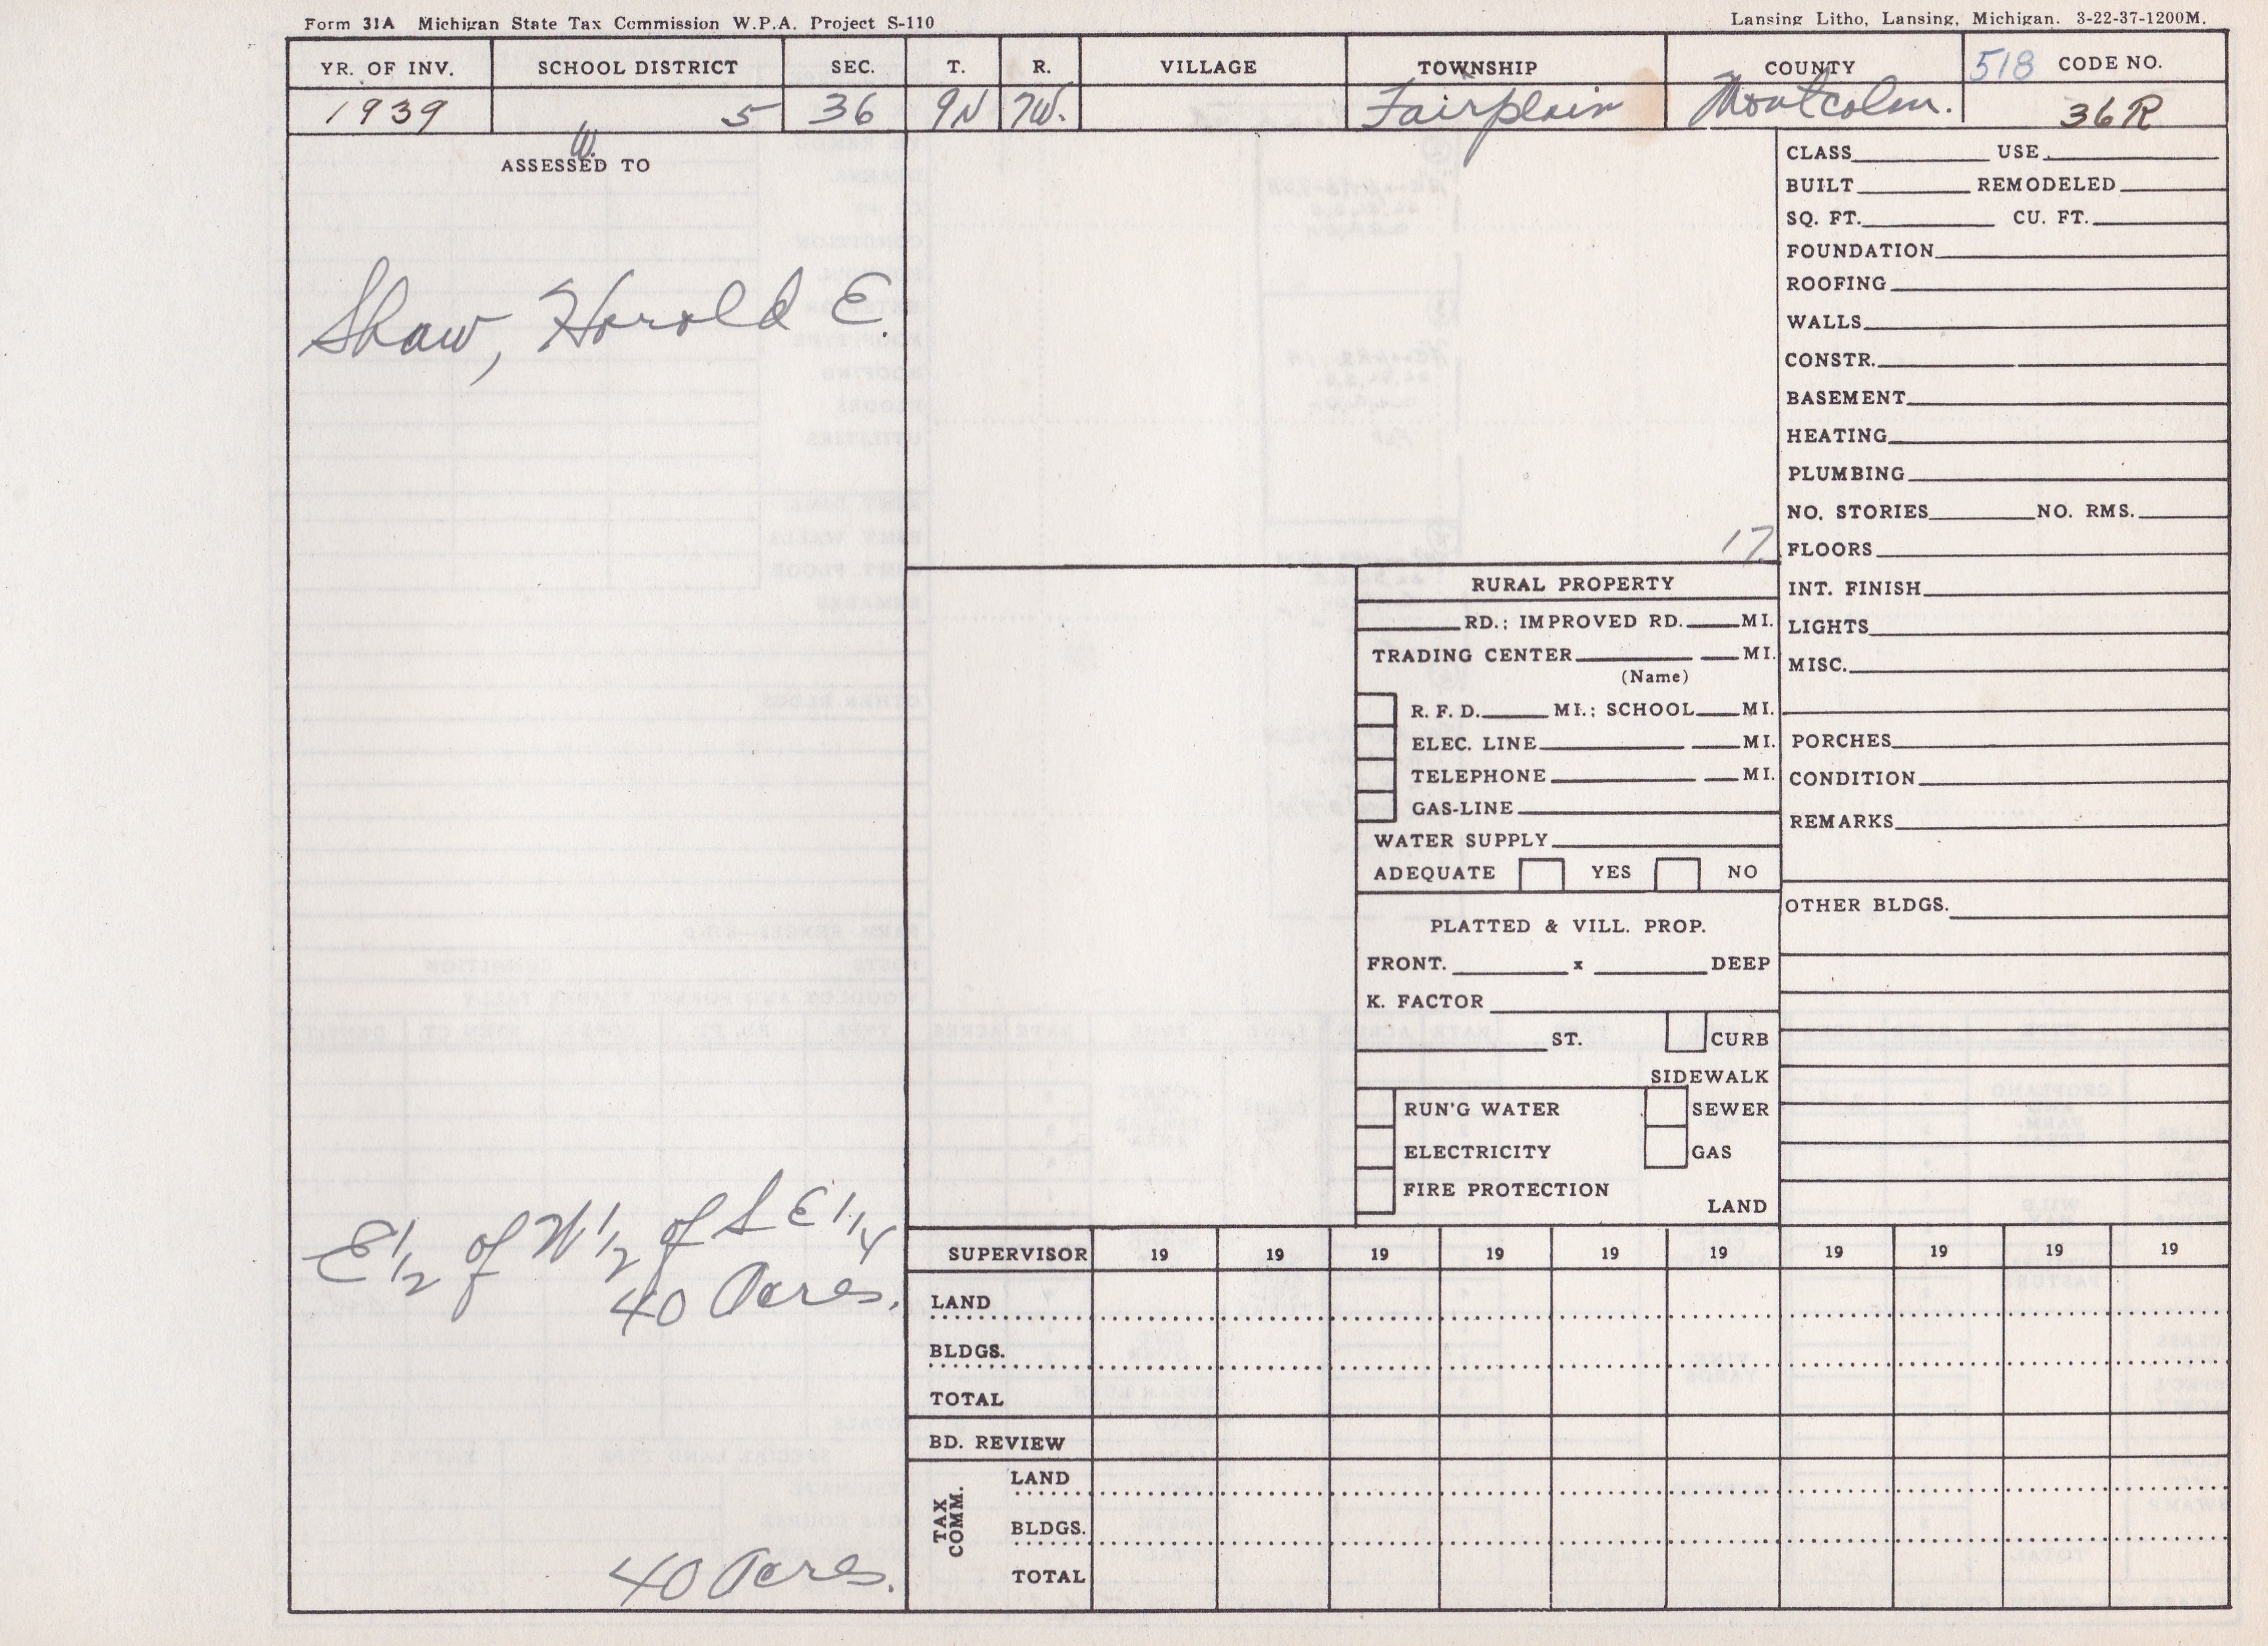 Form 31A Michigan State Tax Commission W.P.A. Project S-110
Lansing Litho, Lansing, Michigan. 3-22-37-1200M.
YR. OF INV. SCHOOL DISTRICT SEC. T. R. VILLAGE TOWNSHIP COUNTY 518 CODE NO.
1939 5 36 9N 7W. Fairplain Montcalm. 36R
W.
ASSESSED TO
Shaw, Harold E.
E 1/2 of W 1/2 of S E 1/4
40 Acres.
40 Acres.
17
RURAL PROPERTY
RD.; IMPROVED RD. MI.
TRADING CENTER MI.
(Name)
R. F. D. MI.; SCHOOL MI.
ELEC. LINE MI.
TELEPHONE MI.
GAS-LINE
WATER SUPPLY
ADEQUATE YES NO
PLATTED & VILL. PROP.
FRONT. x DEEP
K. FACTOR
ST. CURB
SIDEWALK
RUN'G WATER SEWER
ELECTRICITY GAS
FIRE PROTECTION
LAND
CLASS USE
BUILT REMODELED
SQ. FT. CU. FT.
FOUNDATION
ROOFING
WALLS
CONSTR.
BASEMENT
HEATING
PLUMBING
NO. STORIES NO. RMS.
FLOORS
INT. FINISH
LIGHTS
MISC.
PORCHES
CONDITION
REMARKS
OTHER BLDGS.
SUPERVISOR 19 19 19 19 19 19 19 19 19 19
LAND
BLDGS.
TOTAL
BD. REVIEW
TAX COMM.
LAND
BLDGS.
TOTAL